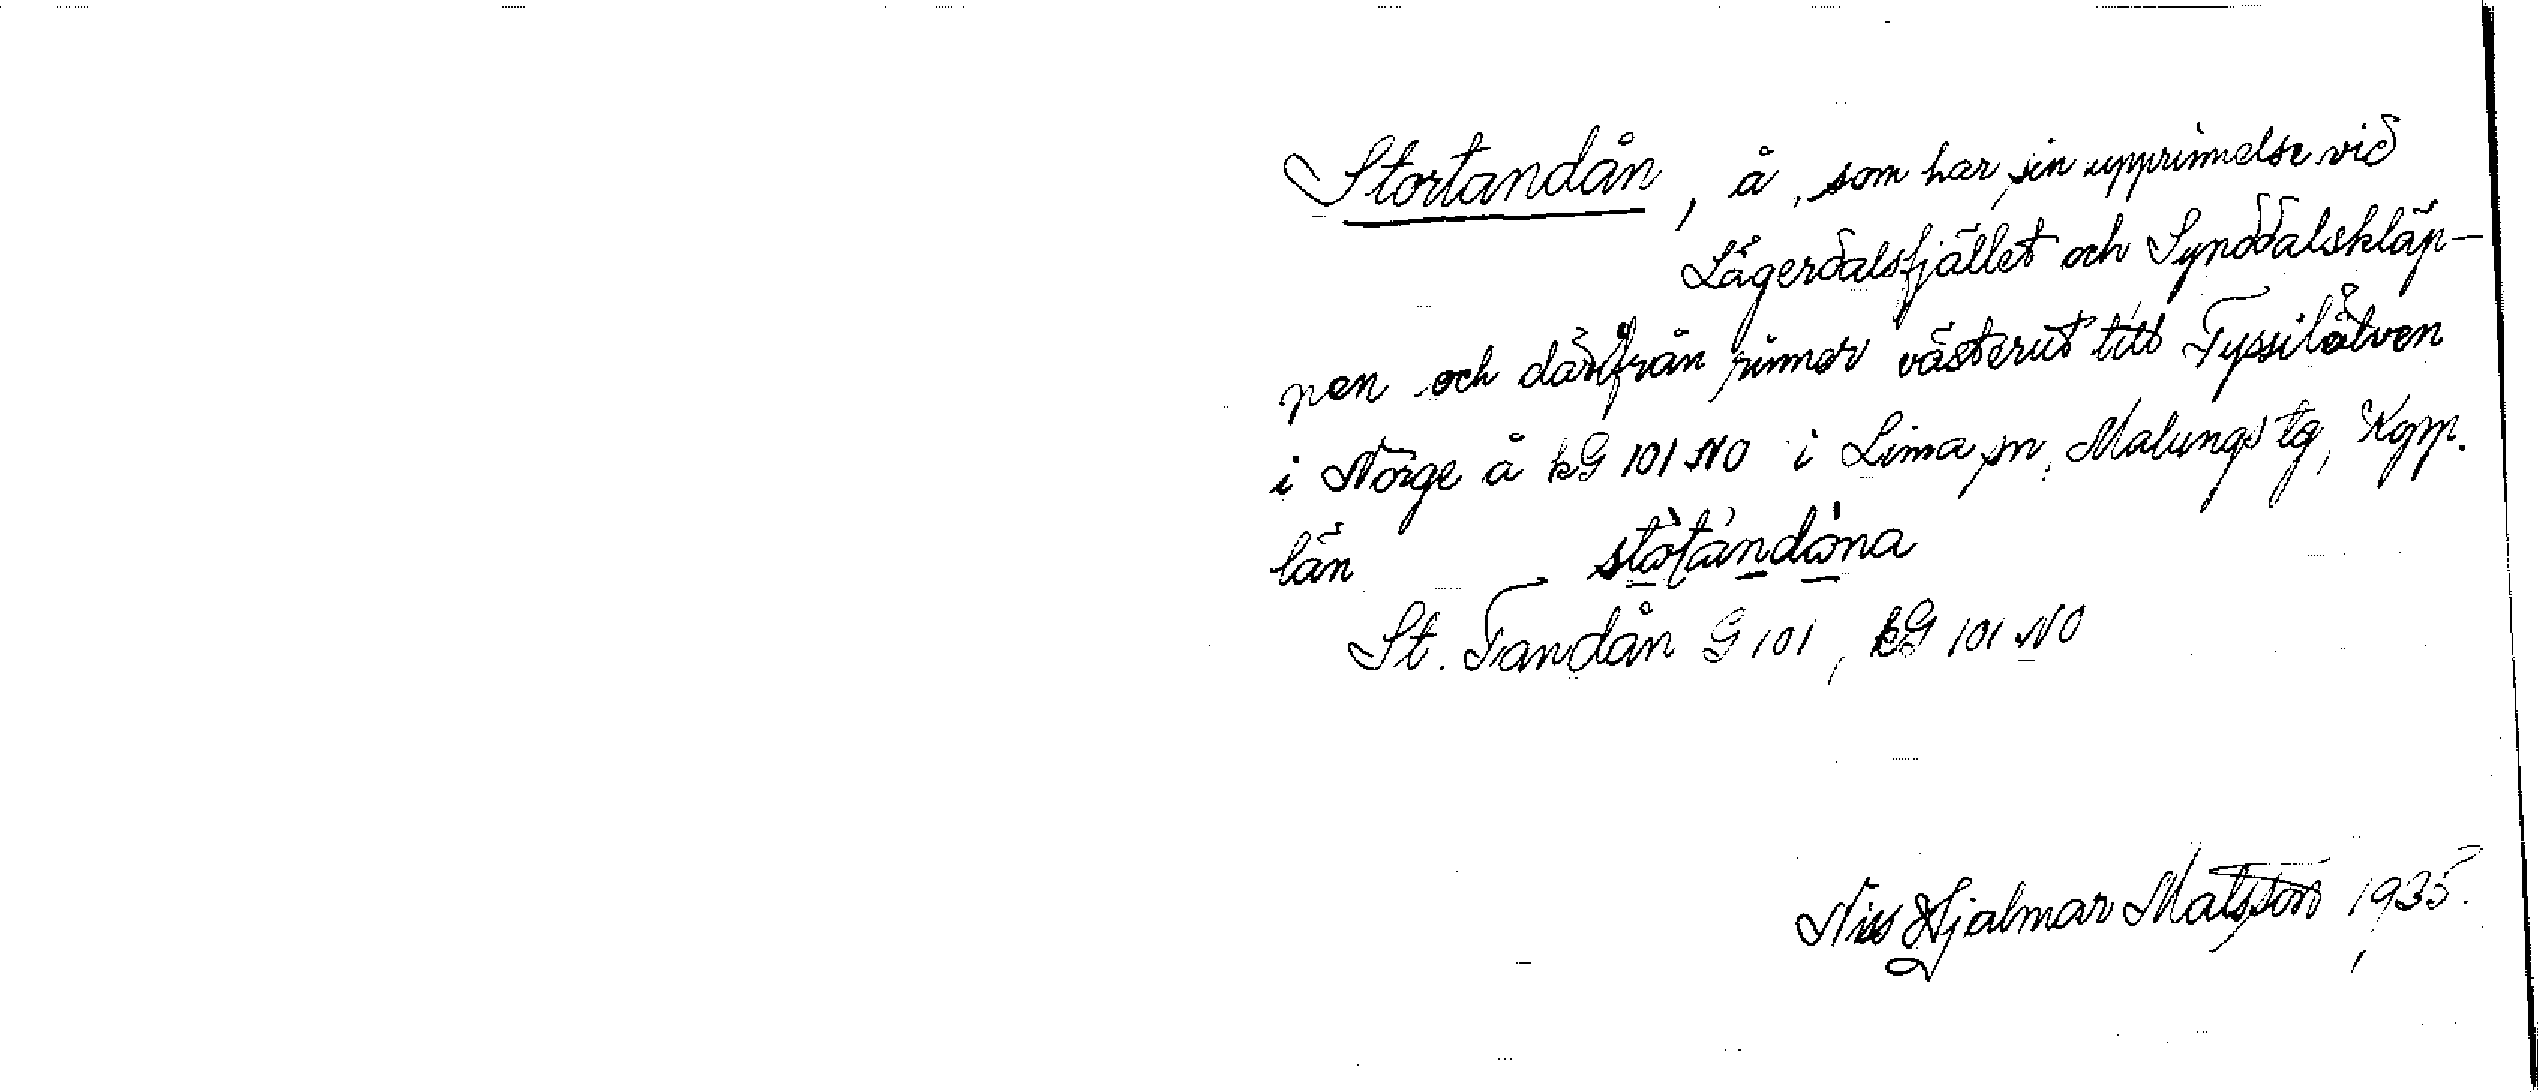 Stortandån, å, som har sin upprinnelse vid
Lågerdalsfjället och Synddalskläp-
pen och därifrån rinner västerut till Tyssilälven
i Norge å kG 101 NO i Lima sn, Malungs tg, Kopp.
län stòtándåna
St. Tandån G 101, kG 101 NO
Niss Hjalmar Matsson, 1935.